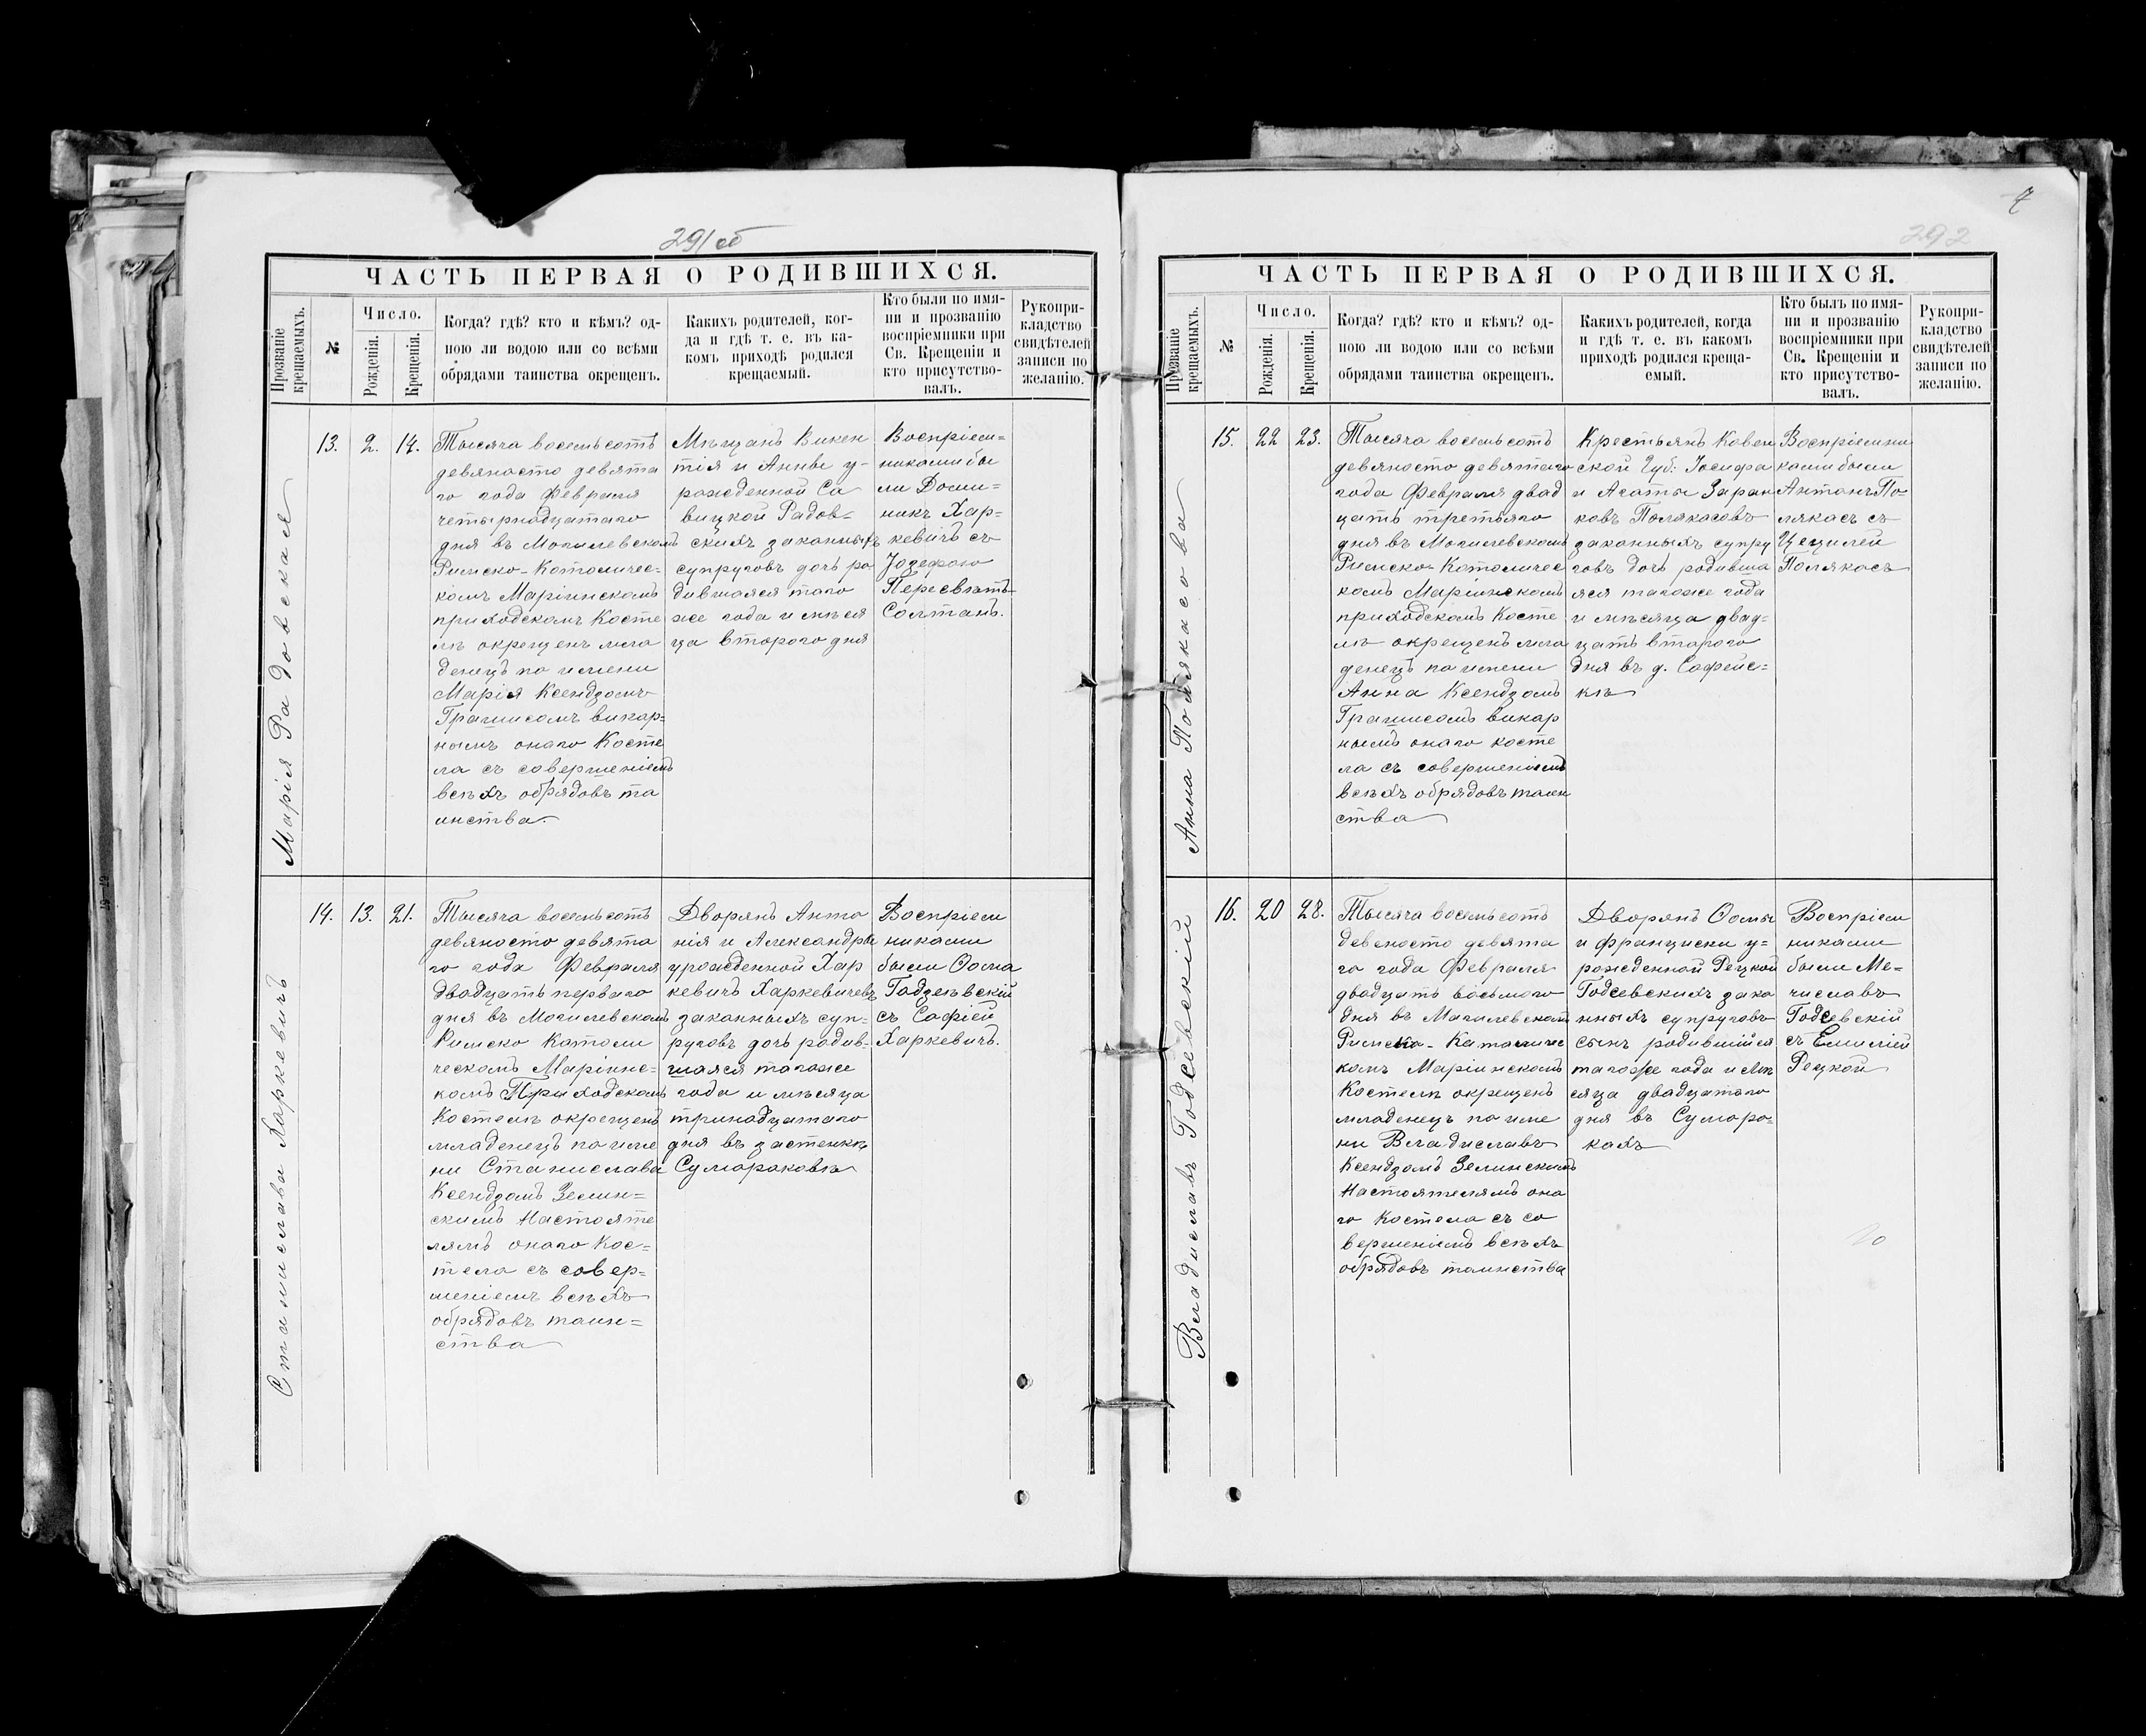 291 об
ЧАСТЬ ПЕРВАЯ О РОДИВШИХСЯ.
Прозваніе крещаемыхъ.
№
Число.
Рожденія.
Крещенія.
Когда? гдѣ? кто и кѣмъ? од-
ною ли водою или со всѣми
обрядами таинства окрещенъ.
Какихъ родителей, ког-
да и гдѣ т. е. въ ка-
комъ приходѣ родился
крещаемый.
Кто были по имя-
ни и прозванію
воспріемники при
Св. Крещеніи и
кто присутство-
валъ.
Рукопри-
кладство
свидѣтелей
записи по
желанію.
Марія Радовская
13.
2.
14.
Тысяча восемьсотъ
девяносто девята
го года Февраля
четырнадцатаго
дня въ Могилевскомъ
Римско-Католичес-
комъ Маріинскомъ
приходскомъ Косте
лѣ окрещенъ мла
денецъ по имени
Марія Ксендзомъ
Грашисомъ викар=
нымъ онаго Косте
ла съ совершеніемъ
всѣхъ обрядовъ та
инства.
Мѣщанъ Викен
тія и Анны у-
рожденной Са
вицкой Радов-
скихъ законныхъ
супруговъ дочь ро
дившаяся того
же года и мѣся
ца втораго дня
Воспріем=
никами бы
ли Доми=
никъ Хар=
кевичъ съ
Іозефою
Пересвѣтъ-
Солтанъ.
Станислава Харкевичъ
14.
13.
21.
Тысяча восемьсотъ
девяносто девята
го года Февраля
двадцать перваго
дня въ Могилевскомъ
Римско Католи
ческомъ Маріинс=
комъ Приходскомъ
Костелѣ окрещенъ
младенецъ по име
ни Станислава
Ксендзомъ Зелин=
скимъ Настояте
лямъ онаго Кос=
тела съ совер=
шеніемъ всѣхъ
обрядовъ таин=
ства
Дворянъ Анто
нія и Александры
урожденной Хар
кевичъ Харкевичевъ
законныхъ суп=
руговъ дочь родив-
шаяся тогоже
года и мѣсяца
тринадцатаго
дня въ застенкѣ
Сумароковѣ
Воспріем
никами
были Ѳома
Годзевскій
съ Софіей
Харкевичъ.
7
292
ЧАСТЬ ПЕРВАЯ О РОДИВШИХСЯ.
Прозваніе крещаемыхъ.
№
Число.
Рожденія.
Крещенія.
Когда? гдѣ? кто и кѣмъ? од-
ною ли водою или со всѣми
обрядами таинства окрещенъ.
Какихъ родителей, когда
и гдѣ т. е. въ какомъ
приходѣ родился креща-
емый.
Кто былъ по имя-
ни и прозванію
воспріемники при
Св. Крещеніи и
кто присутство-
валъ.
Рукопри-
кладство
свидѣтелей
записи по
желанію.
Анна Полякасова
15.
22
23.
Тысяча восемьсотъ
девяносто девятаго
года Февраля двад
цать третьяго
дня въ Могилевскомъ
Римско-Католичес
комъ Маріинскомъ
приходскомъ Косте
лѣ окрещенъ мла
денецъ по имени
Анна Ксендзомъ
Грашисомъ викар
нымъ онаго косте
ла съ совершеніемъ
всѣхъ обрядовъ таин
ства
Крестьянъ Ковен
ской Губ: Іосифа
и Агаты Заран
ковъ Полякасовъ
законныхъ супру
говъ дочь родивша
яся тогоже года
и мѣсяца двад-
цать втораго
дня въ д. Софейс-
кѣ
Воспріемни
ками были
Антонъ По-
лякасъ съ
Цецилей
Полякасъ
Владиславъ Годсевскій
16.
20
28.
Тысяча восемьсотъ
девеносто девята
го года Февраля
двадцать восьмого
дня въ Могилевскомъ
Римско-Католичес
комъ Маріинскомъ
Костелѣ окрещенъ
младенецъ по име
ни Владиславъ
Ксендзомъ Зелинскимъ
Настоятелямъ она
го Костела съ со
вершеніемъ всѣхъ
обрядовъ таинства
Дворянъ Ѳомы
и Франциски у=
рожденной Рецкой
Годсевскихъ зако
нныхъ супруговъ
сынъ родившійся
тогоже года и мѣ
сяца двадцатаго
дня въ Суморо-
кахъ
Воспріем
никами
были Ме-
числавъ
Годсевскій
съ Емиліей
Рецкой